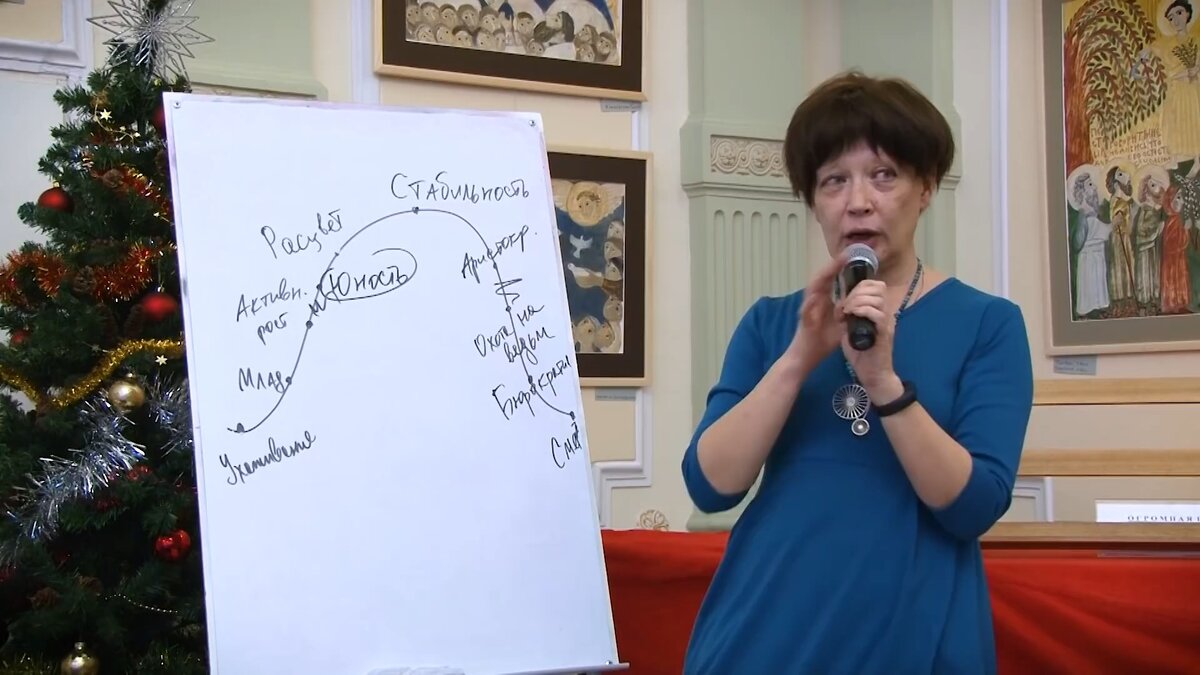 Стабильность
Расцвет
Юность
Аристокр.
Активн.
рост
Охота на
ведьм
Млад
Бюрократи
Ухаживание
Смер
ОГРОМНАЯ